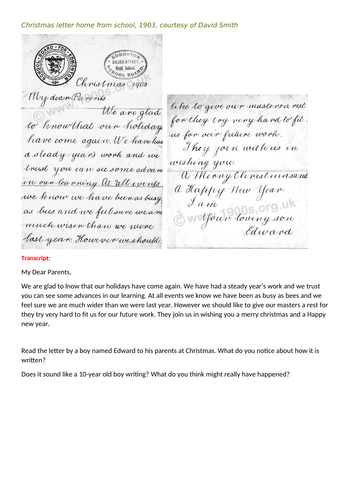 Christmas letter home from school, 1903, courtesy of David Smith
SCHOOL BOARD FOR EDMONTON
EDMONTON
SILVER STREET,
Boys' School.
SCHOOL BOARD
Christmas 1903
My dear Parents
We are glad
to know that our holidays
have come again. We have had
a steady year's work and we
trust you can see some advan
in our learning. At all events
we know we have been as busy
as bees and we feel sure we are
much wiser than we were
last year. However we should
like to give our masters a rest
for they try very hard to fit
us for our future work.
They join with us in
wishing you
A Merry Christmas and
A Happy New Year
I am
Your loving son
Edward
© www.1900s.org.uk
© www.1900s.org.uk
Transcript:
My Dear Parents,
We are glad to Inow that our holidays have come again. We have had a steady year's work and we trust
you can see some advances in our learning. At all events we know we have been as busy as bees and we
feel sure we are much wider than we were last year. However we should like to give our masters a rest for
they try very hard to fit us for our future work. They join us in wishing you a merry christmas and a Happy
new year.
Read the letter by a boy named Edward to his parents at Christmas. What do you notice about how it is
written?
Does it sound like a 10-year old boy writing? What do you think might really have happened?